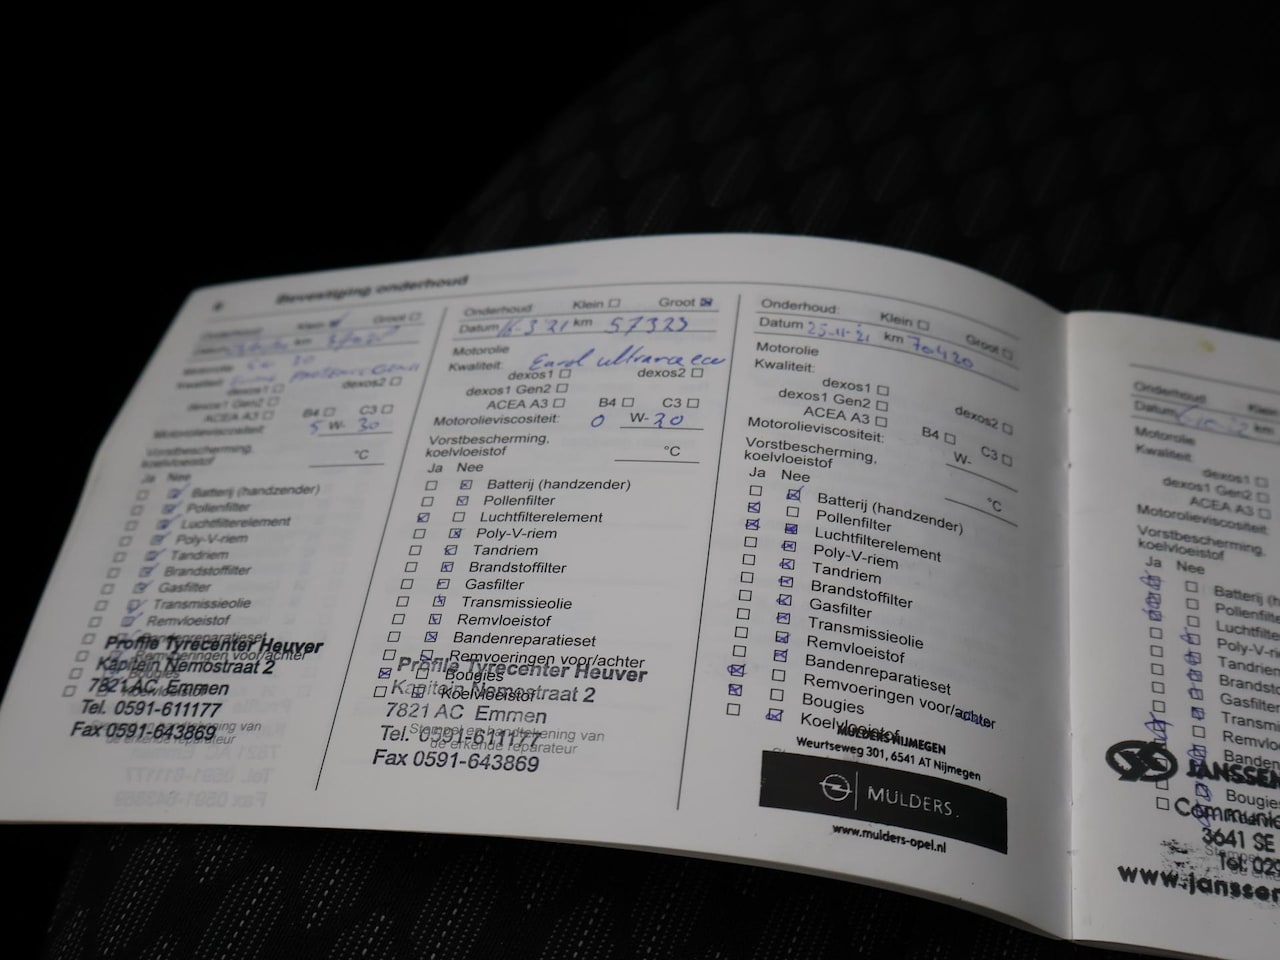 Bevestiging onderhoud
Onderhoud Klein Groot
km
Motorolie
Kwaliteit:
dexos1 dexos2
dexos1 Gen2
ACEA A3 B4 C3
Motorolieviscositeit: 5 W- 30
Vorstbescherming,
koelvloeistof °C
Ja Nee
Batterij (handzender)
Pollenfilter
Luchtfilterelement
Poly-V-riem
Tandriem
Brandstoffilter
Gasfilter
Transmissieolie
Remvloeistof
Bandenreparatieset
Remvoeringen voor/achter
Bougies
Koelvloeistof
Profile Tyrecenter Heuver
Kapitein Nemostraat 2
7821 AC Emmen
Tel. 0591-611177
Fax 0591-643869
Stempel en handtekening van
de erkende reparateur
Onderhoud Klein Groot
Datum 16-3'21 km 57323
Motorolie
Kwaliteit:
dexos1 dexos2
dexos1 Gen2
ACEA A3 B4 C3
Motorolieviscositeit: 0 W-20
Vorstbescherming,
koelvloeistof °C
Ja Nee
Batterij (handzender)
Pollenfilter
Luchtfilterelement
Poly-V-riem
Tandriem
Brandstoffilter
Gasfilter
Transmissieolie
Remvloeistof
Bandenreparatieset
Remvoeringen voor/achter
Bougies
Koelvloeistof
Profile Tyrecenter Heuver
Kapitein Nemostraat 2
7821 AC Emmen
Tel. 0591-611177
Fax 0591-643869
Stempel en handtekening van
de erkende reparateur
Onderhoud Klein Groot
Datum 25-11-'21 km 70420
Motorolie
Kwaliteit:
dexos1 dexos2
dexos1 Gen2
ACEA A3 B4 C3
Motorolieviscositeit: W-
Vorstbescherming,
koelvloeistof °C
Ja Nee
Batterij (handzender)
Pollenfilter
Luchtfilterelement
Poly-V-riem
Tandriem
Brandstoffilter
Gasfilter
Transmissieolie
Remvloeistof
Bandenreparatieset
Remvoeringen voor/achter
Bougies
Koelvloeistof
MULDERS NIJMEGEN
Weurtseweg 301, 6541 AT Nijmegen
MULDERS.
www.mulders-opel.nl
Onderhoud Klein
Datum km
Motorolie
Kwaliteit:
dexos1
dexos1 Gen2
ACEA A3
Motorolieviscositeit:
Vorstbescherming,
koelvloeistof
Ja Nee
Batterij (h
Pollenfilter
Luchtfilter
Poly-V-ri
Tandriem
Brandsto
Gasfilter
Transm
Remvlo
Banden
Bougies
JANSSEN
Communi
3641 SE
Tel: 029
www.janssen